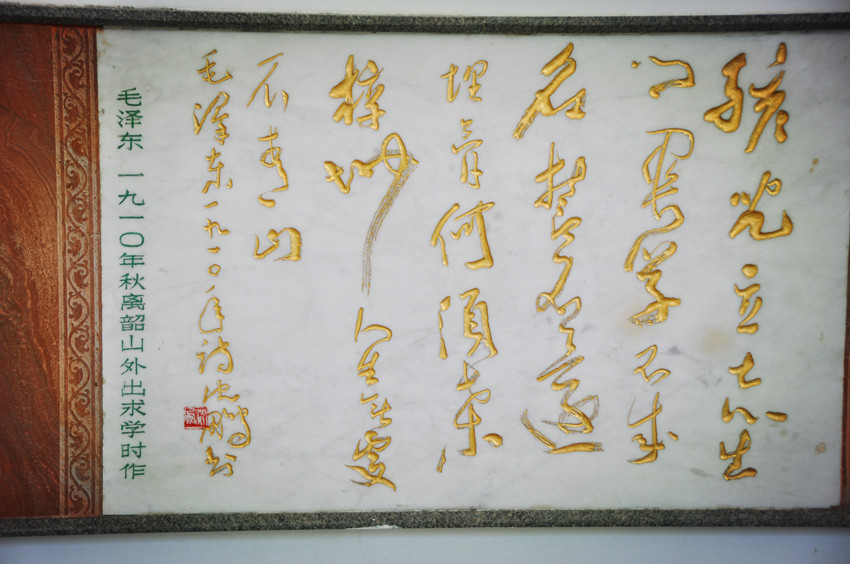 孩儿立志出
乡関学不成
名誓不还
埋骨何须桑
梓地人生无处
不青山
毛泽东一九一〇年诗沈鹏书
毛泽东 一九一〇年秋离韶山外出求学时作